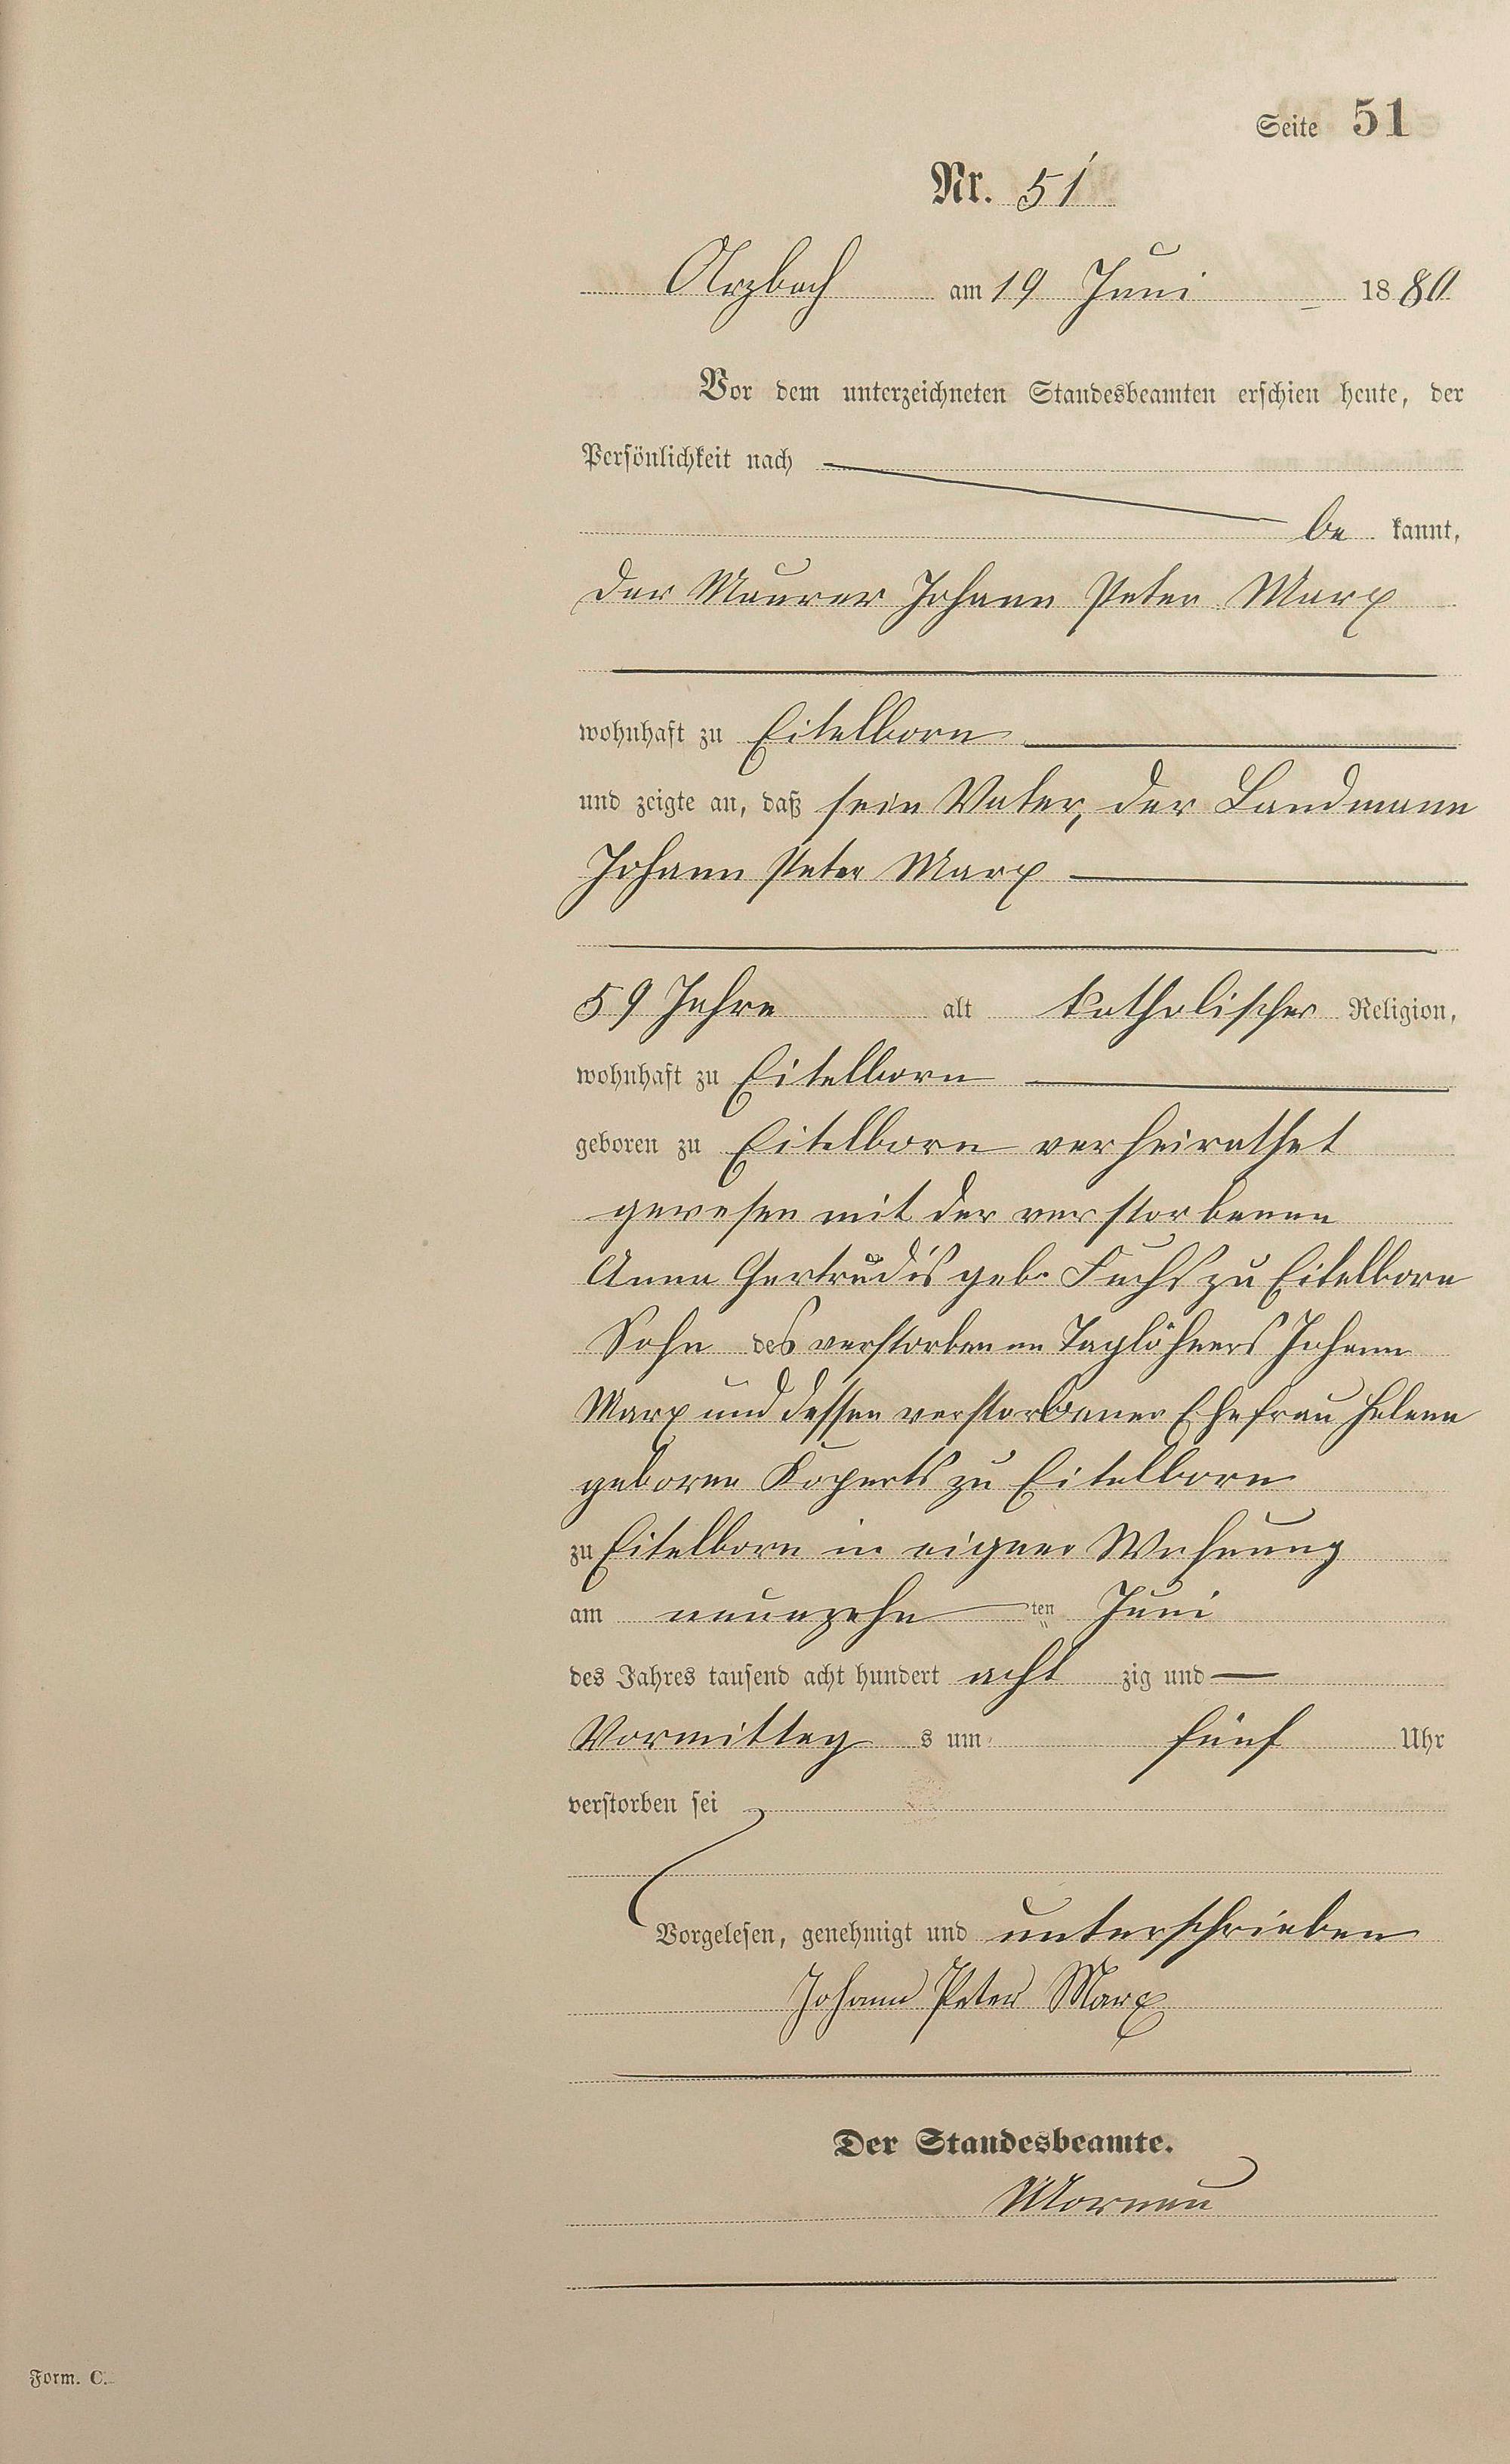 Seite 51
Nr. 51
Arzbach am 19 Juni 1880
Vor dem unterzeichneten Standesbeamten erschien heute, der
Persönlichkeit nach
be kannt,
der Maurer Johann Peter Marx
wohnhaft zu Eitelborn
und zeigte an, daß sein Vater, der Landmann
Johann Peter Marx
59 Jahre alt katholischer Religion,
wohnhaft zu Eitelborn
geboren zu Eitelborn verheirathet
gewesen mit der verstorbenen
Anna Gertrudis geb. Fuchs zu Eitelborn
Sohn des verstorbenen Taglöhners Johann
Marx und dessen verstorbener Ehefrau Helena
geborene zu Eitelborn
zu Eitelborn in eigner Wohnung
am neunzehn ten Juni
des Jahres tausend acht hundert acht zig und
Vormittag s um fünf Uhr
verstorben sei
Vorgelesen, genehmigt und unterschrieben
Johann Peter Marx
Der Standesbeamte.
Form. C.